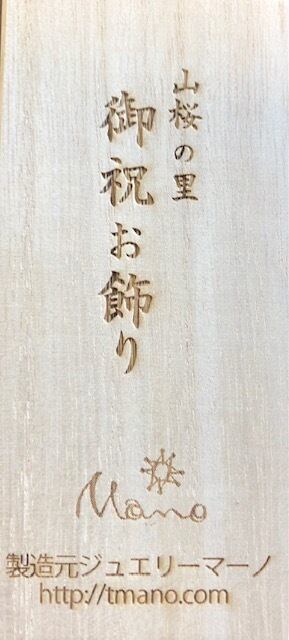 山桜の里
御祝お飾り
Mano
製造元ジュエリーマーノ
http://tmano.com